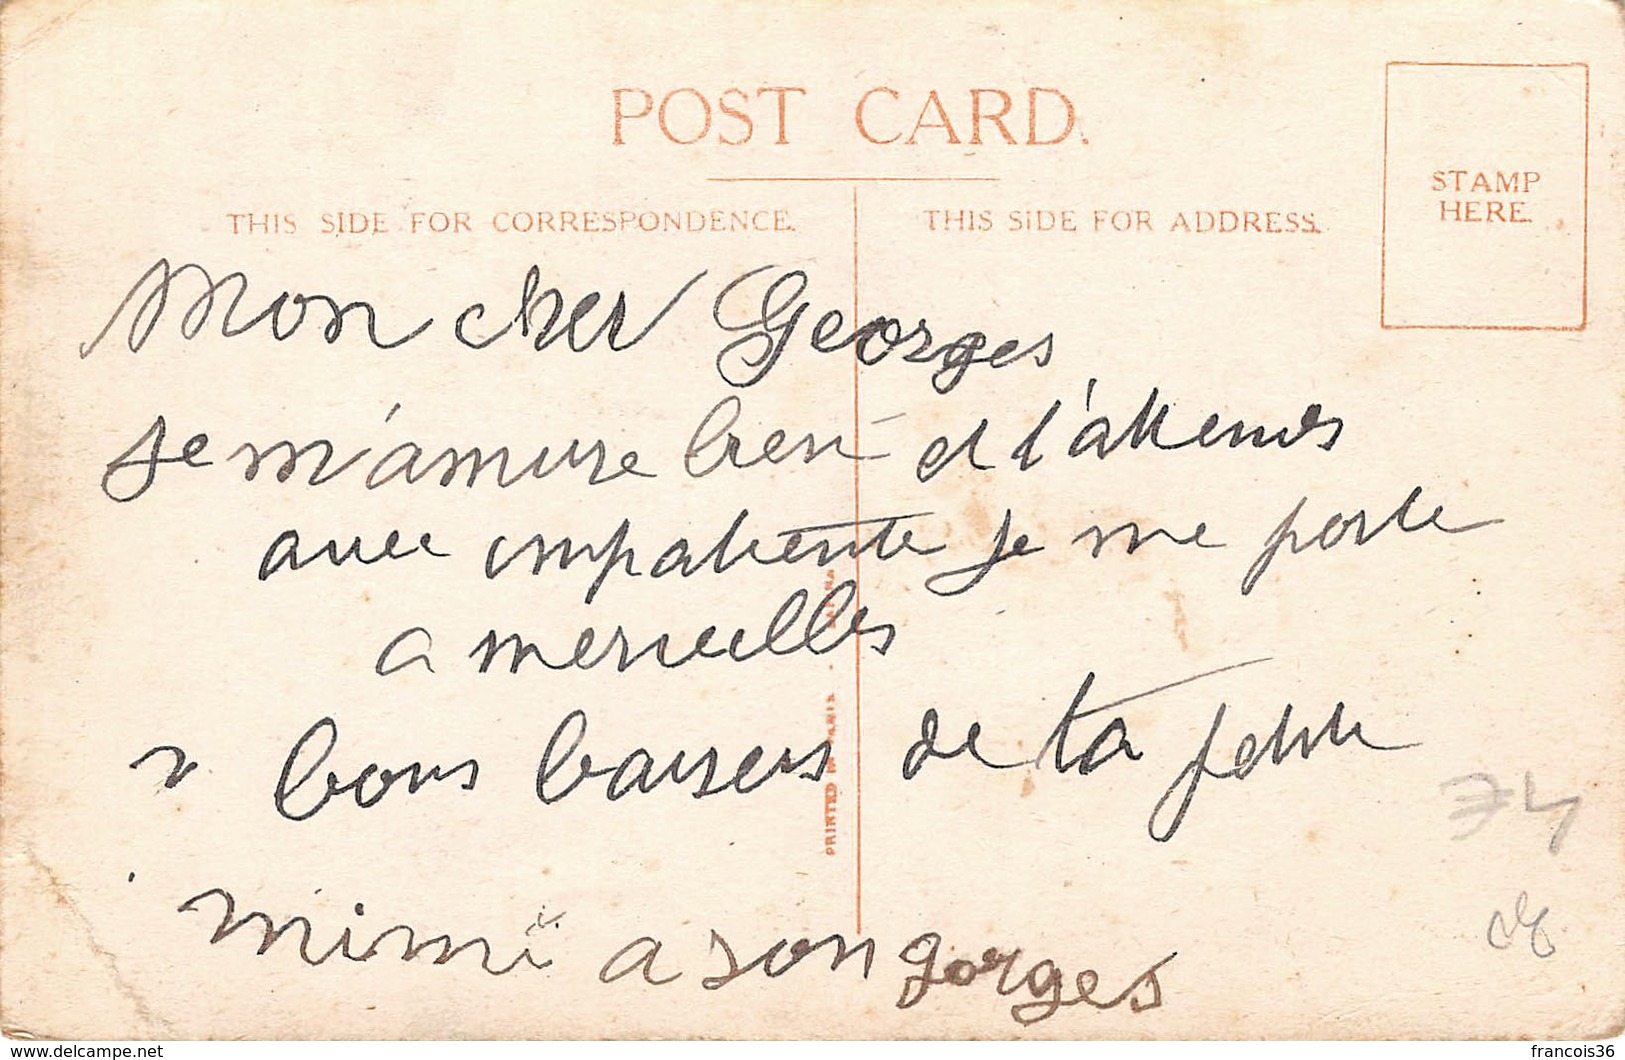 POST CARD.
THIS SIDE FOR CORRESPONDENCE.
THIS SIDE FOR ADDRESS.
STAMP
HERE.
Mon cher Georges
Je m'amuse bien et l'attends
avec impatiente je me porte
a merveilles
bons baisers de ta petite
mimi a son gorges
PRINTED IN
74
francois36
www.delcampe.net